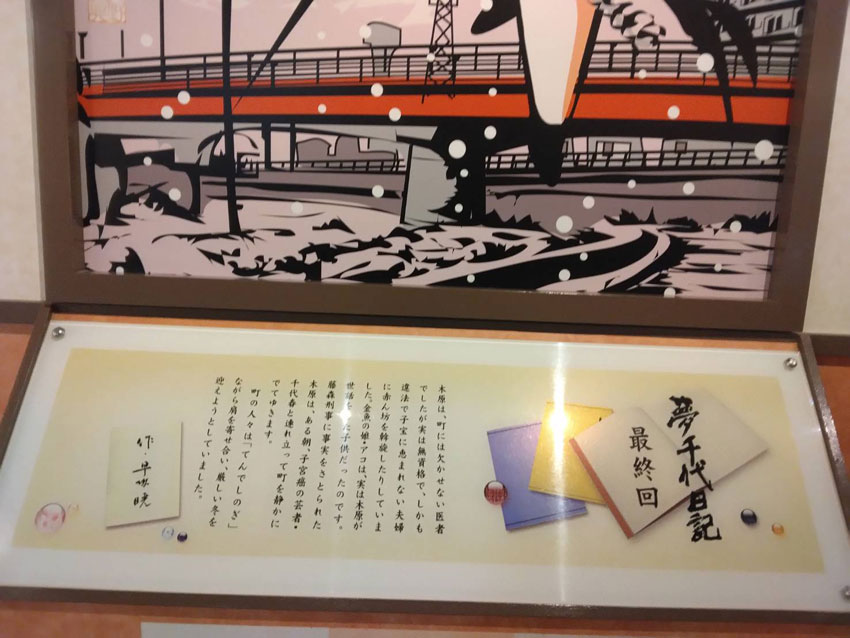 夢千代日記
最終回
木原は、町には欠かせない医者
でしたが実は無資格で、しかも
違法で子宝に恵まれない夫婦
に赤ん坊を斡旋したりしていま
した。金魚の娘・アコは、実は木原が
世話した子供だったのです。
藤森刑事に事実をさとられた
木原は、ある朝、子宮癌の芸者・
千代春と連れ立って町を静かに
でてゆきます。
町の人々は「てんでしのぎ」
ながら肩を寄せ合い、厳しい冬を
迎えようとしていました。
作・早坂暁